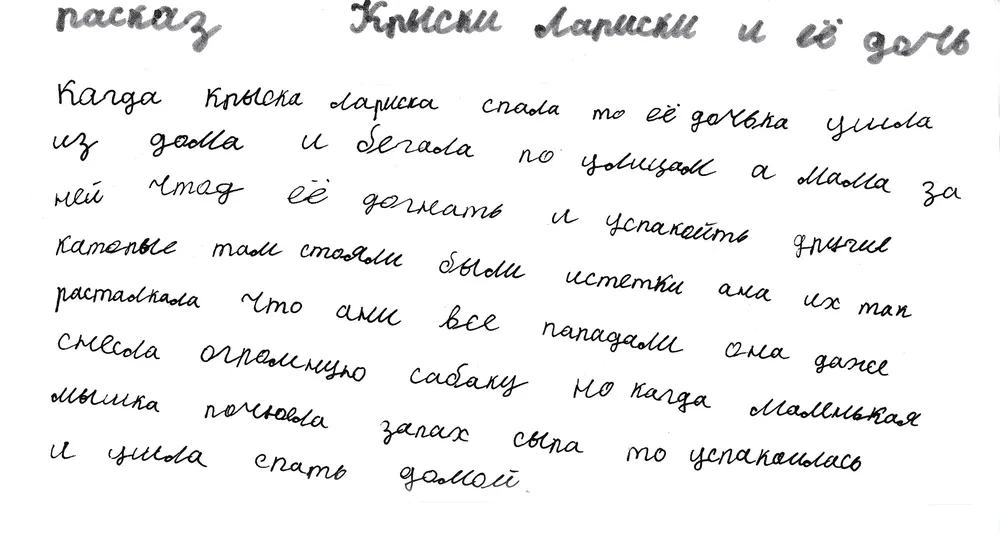 расказ Крыски Лариски и её дочь
Кагда крыска лариска спала то её дочька ушла
из дома и бегала по улицам а мама за
ней чтоб её догнать и успакоить другие
каторые там стояли были истетки ана их так
расталкала что ани все пападали она даже
снесла огромную сабаку но кагда маленькая
мышка почюела запах сыра то успакоилась
и ушла спать домой.